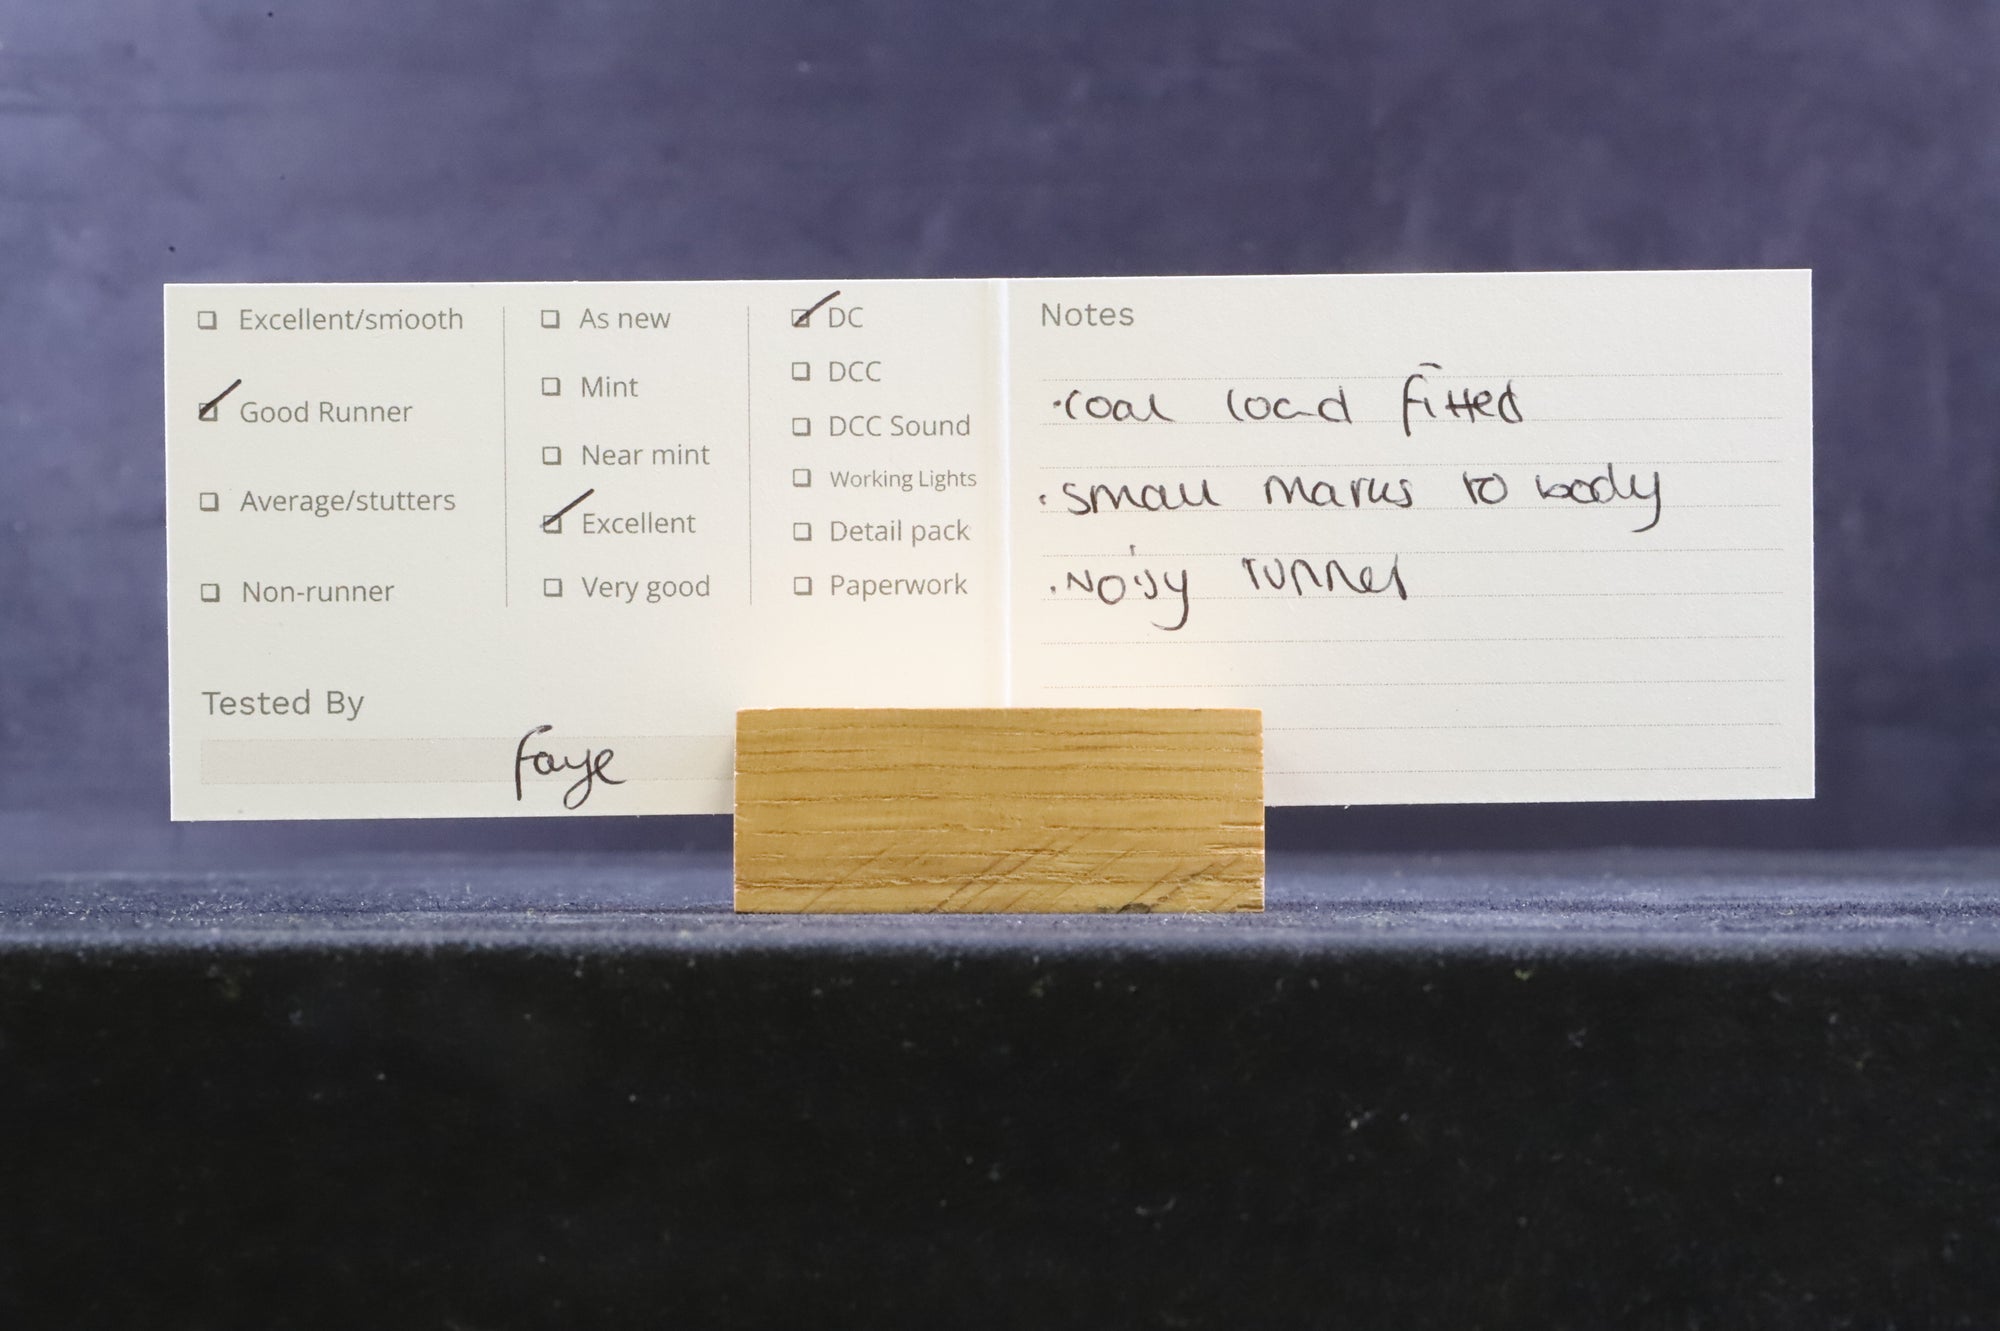 Excellent/smooth
Good Runner
Average/stutters
Non-runner
As new
Mint
Near mint
Excellent
Very good
DC
DCC
DCC Sound
Working Lights
Detail pack
Paperwork
Tested By
Faye
Notes
·coal load fitted
·small marks to body
·Noisy runner